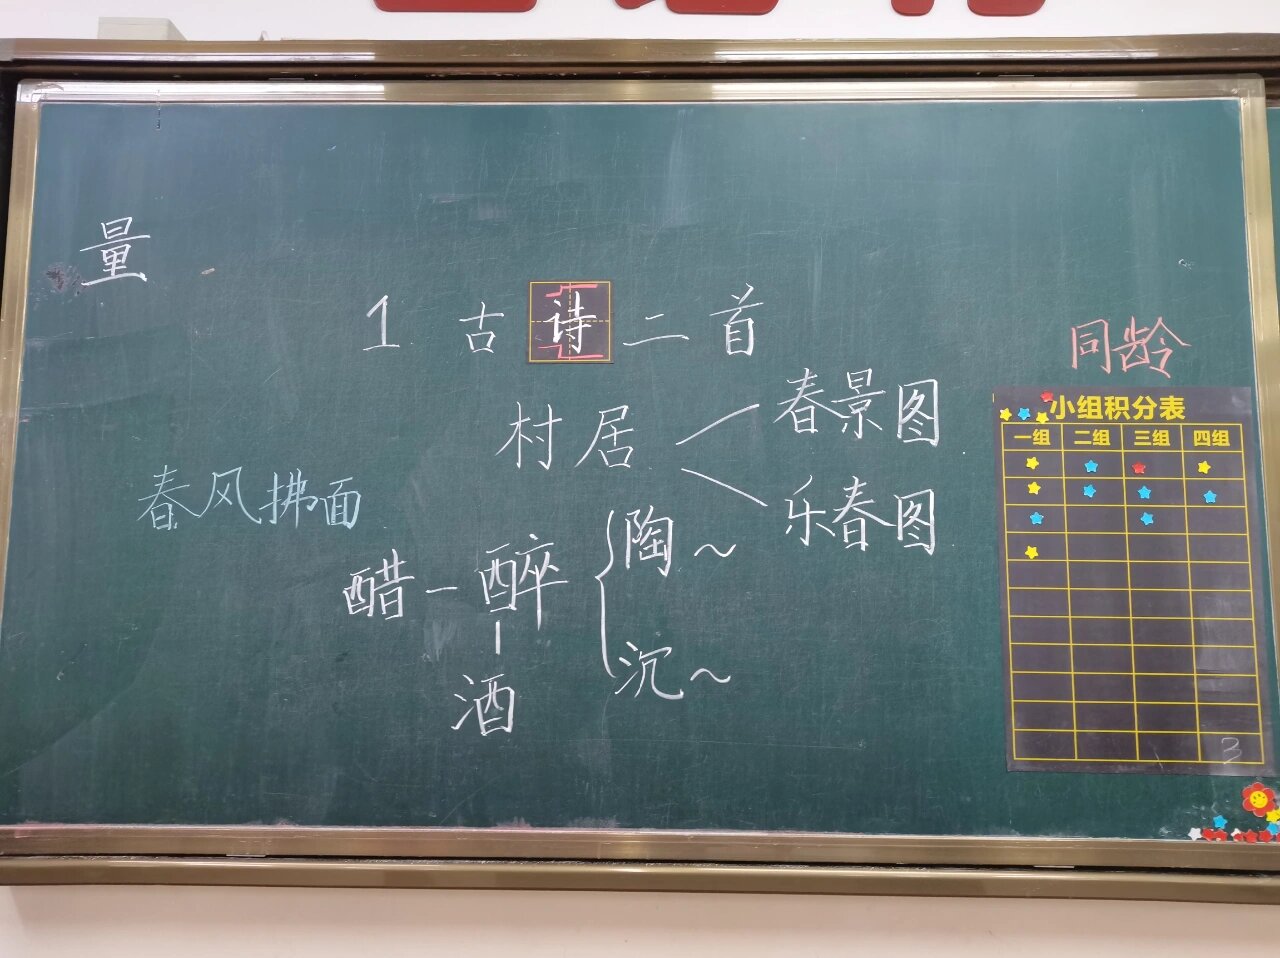 量
1 古诗二首
同龄
村居
春景图
乐春图
春风拂面
醋－醉
陶～
沉～
酒
小组积分表
一组 二组 三组 四组
3